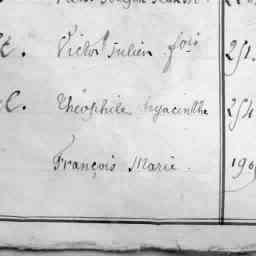 t. Victor Julien fois 251
C. Théophile hyacinthe 254
François Marie. 190